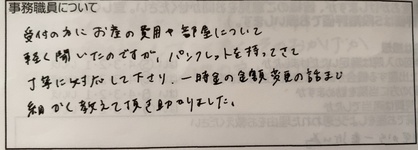 事務職員について
受付の方にお産の費用や部屋について
軽く聞いたのですが、パンフレットを持ってきて
丁寧に対応して下さり、一時金の金額変更の話まで
細かく教えて頂き助かりました。